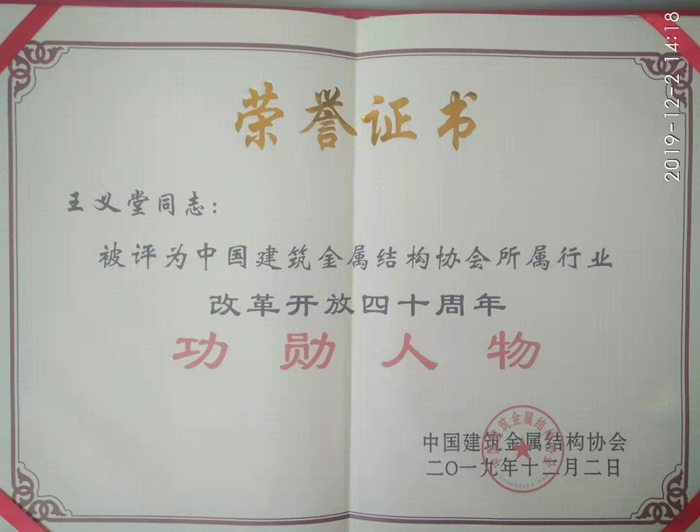 荣誉证书
王义堂同志：
被评为中国建筑金属结构协会所属行业
改革开放四十周年
功勋人物
中国建筑金属结构协会
二〇一九年十二月二日
中国建筑金属结构协会
2019-12-2 14:18